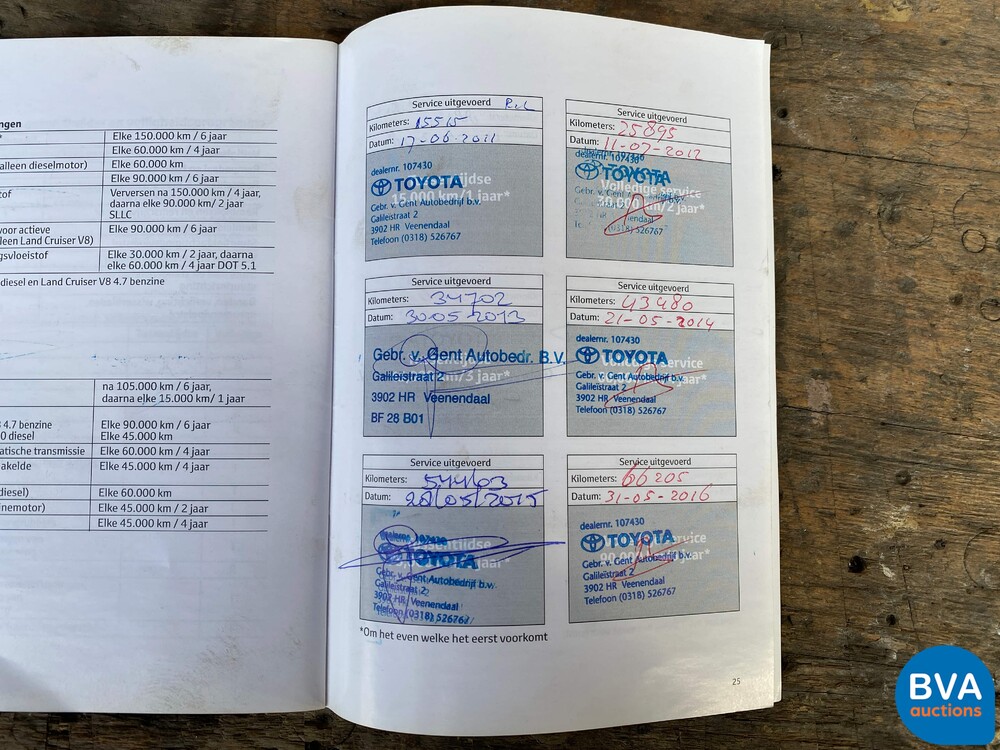 ngen
Elke 150.000 km / 6 jaar
Elke 60.000 km / 4 jaar
alleen dieselmotor)
Elke 60.000 km
Elke 90.000 km / 6 jaar
tof
Verversen na 150.000 km / 4 jaar,
daarna elke 90.000 km / 2 jaar
SLLC
voor actieve
leen Land Cruiser V8)
Elke 90.000 km / 6 jaar
gsvloeistof
Elke 30.000 km / 2 jaar, daarna
elke 60.000 km / 4 jaar DOT 5.1
diesel en Land Cruiser V8 4.7 benzine
na 105.000 km / 6 jaar,
daarna elke 15.000 km / 1 jaar
4.7 benzine
0 diesel
Elke 90.000 km / 6 jaar
Elke 45.000 km
atische transmissie
Elke 60.000 km / 4 jaar
akelde
Elke 45.000 km / 4 jaar
diesel)
Elke 60.000 km
nemotor)
Elke 45.000 km / 2 jaar
Elke 45.000 km / 4 jaar
Service uitgevoerd
Kilometers: 15515
Datum: 17-06-2011
dealernr. 107430
TOYOTA
15.000 km/1 jaar*
Gebr. v. Gent Autobedrijf b.v.
Galileistraat 2
3902 HR Veenendaal
Telefoon (0318) 526767
Service uitgevoerd
Kilometers: 25895
Datum: 11-07-2012
dealernr. 107430
TOYOTA
Volledige service
30.000 km/2 jaar*
Gebr. v. Gent
(0318) 526767
Service uitgevoerd
Kilometers: 34702
Datum: 30-05-2013
Gebr. v. Gent Autobedr. B.V.
km/3 jaar*
Galileistraat 2
3902 HR Veenendaal
BF 28 B01
Service uitgevoerd
Kilometers: 43480
Datum: 21-05-2014
dealernr. 107430
TOYOTA
service
Gebr. v. Gent Autobedrijf b.v.
Galileistraat 2
3902 HR Veenendaal
Telefoon (0318) 526767
Service uitgevoerd
Kilometers: 54463
Datum: 28/05/2015
dealernr. 107430
TOYOTA
Gebr. v. Gent Autobedrijf b.v.
Galileistraat 2
3902 HR Veenendaal
Telefoon (0318) 526767
Service uitgevoerd
Kilometers: 66205
Datum: 31-05-2016
dealernr. 107430
TOYOTA
service
Gebr. v. Gent Autobedrijf b.v.
Galileistraat 2
3902 HR Veenendaal
Telefoon (0318) 526767
*Om het even welke het eerst voorkomt
25
BVA
auctions